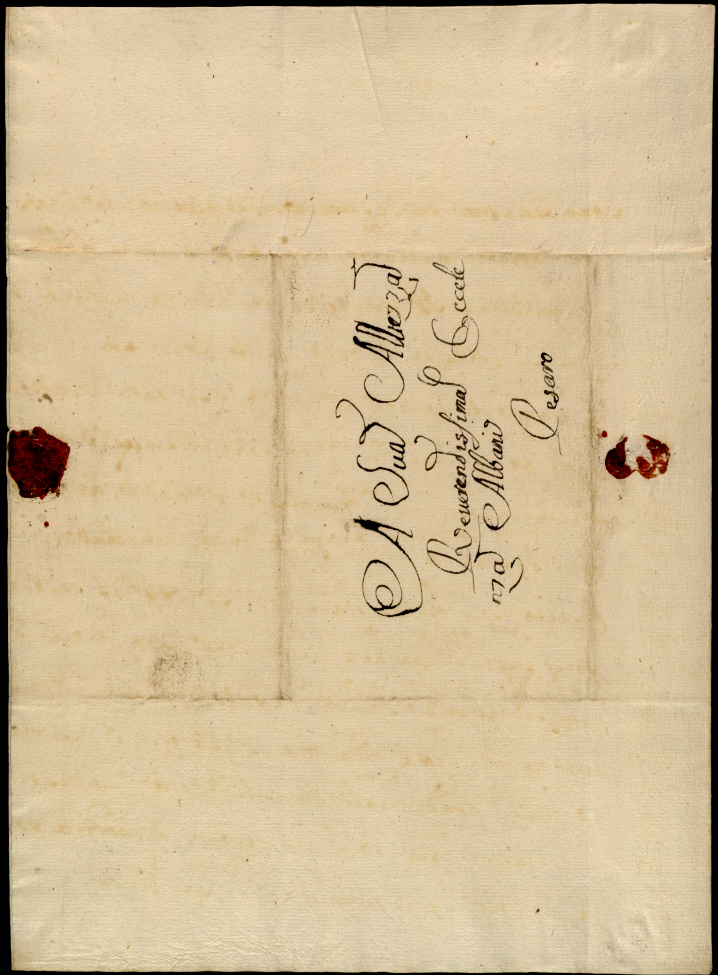 A Sua Altezza
Reverendissima Eccele
nza Albani
Pesaro